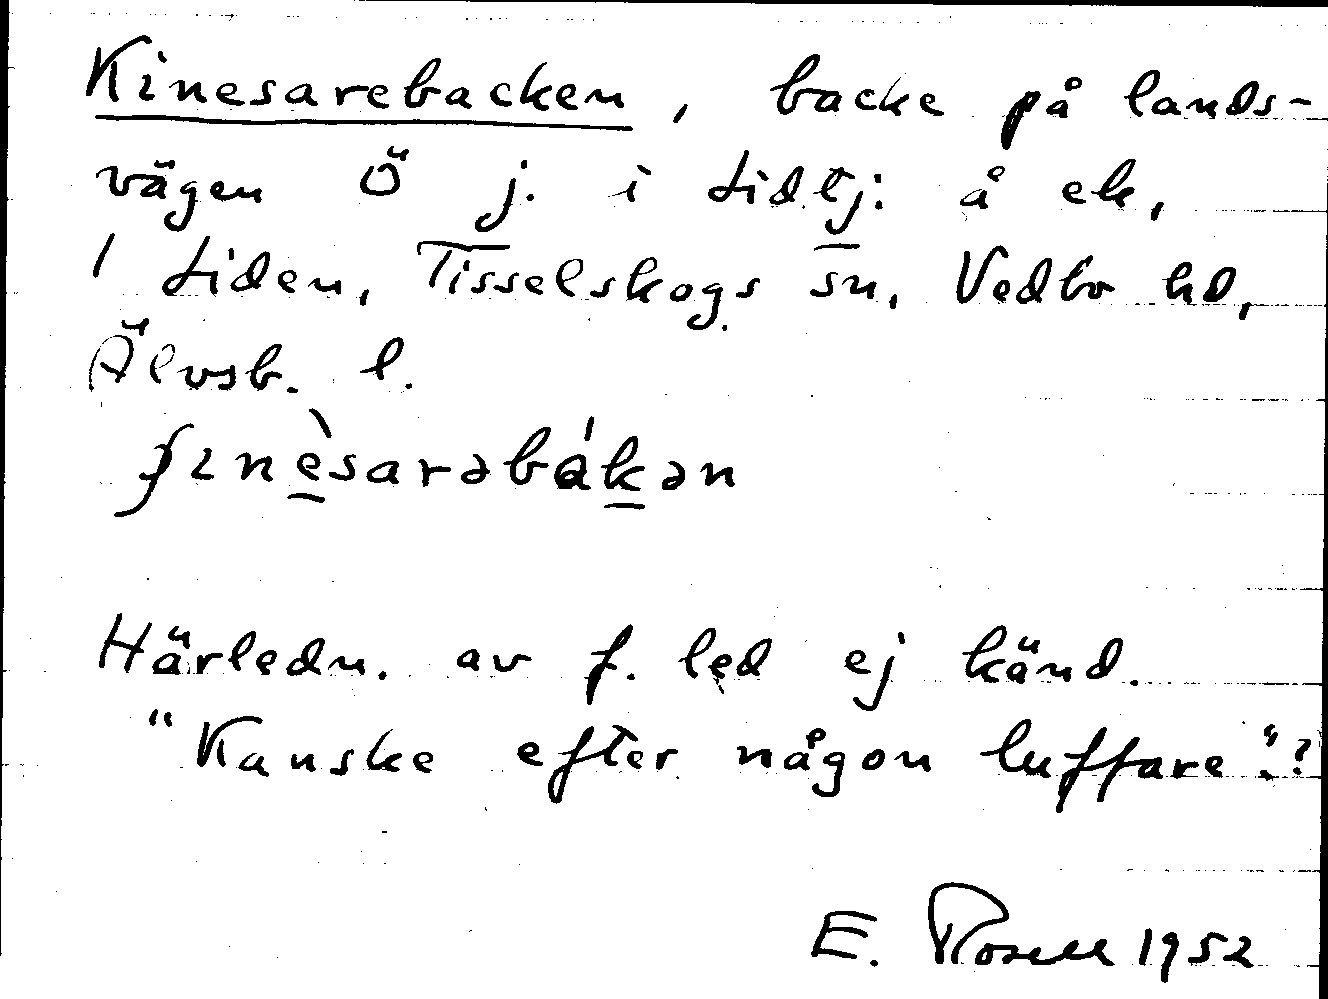 Kinesarebacken, backe på lands-
vägen Ö j. i Lidtj: å ek,
1 Liden, Tisselskogs sn, Vedbo hd,
Älvsb. l.
ʃınèsarəbákən
Härledn. av f. led ej känd.
"Kanske efter någon luffare".?
E. Rosell 1952